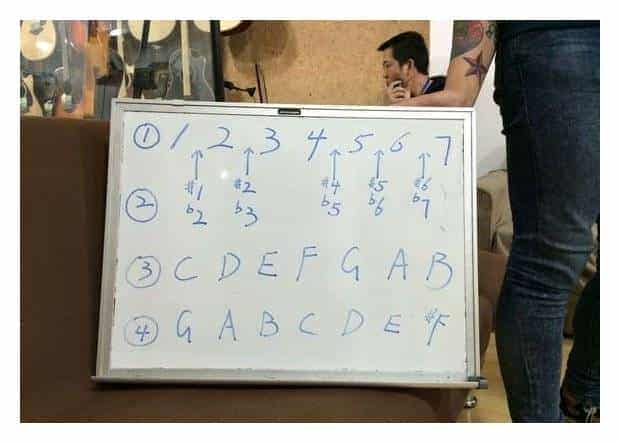 ① 1 2 3 4 5 6 7
#1 #2 #4 #5 #6
② b2 b3 b5 b6 b7
③ C D E F G A B
④ G A B C D E #F